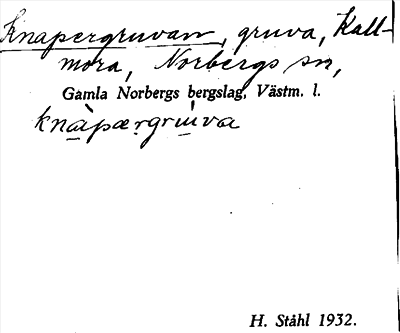 Knapergruvan, gruva, Kall-
mora, Norbergs sn,
Gamla Norbergs bergslag, Västm. l.
knàpærgrùva
H. Ståhl 1932.